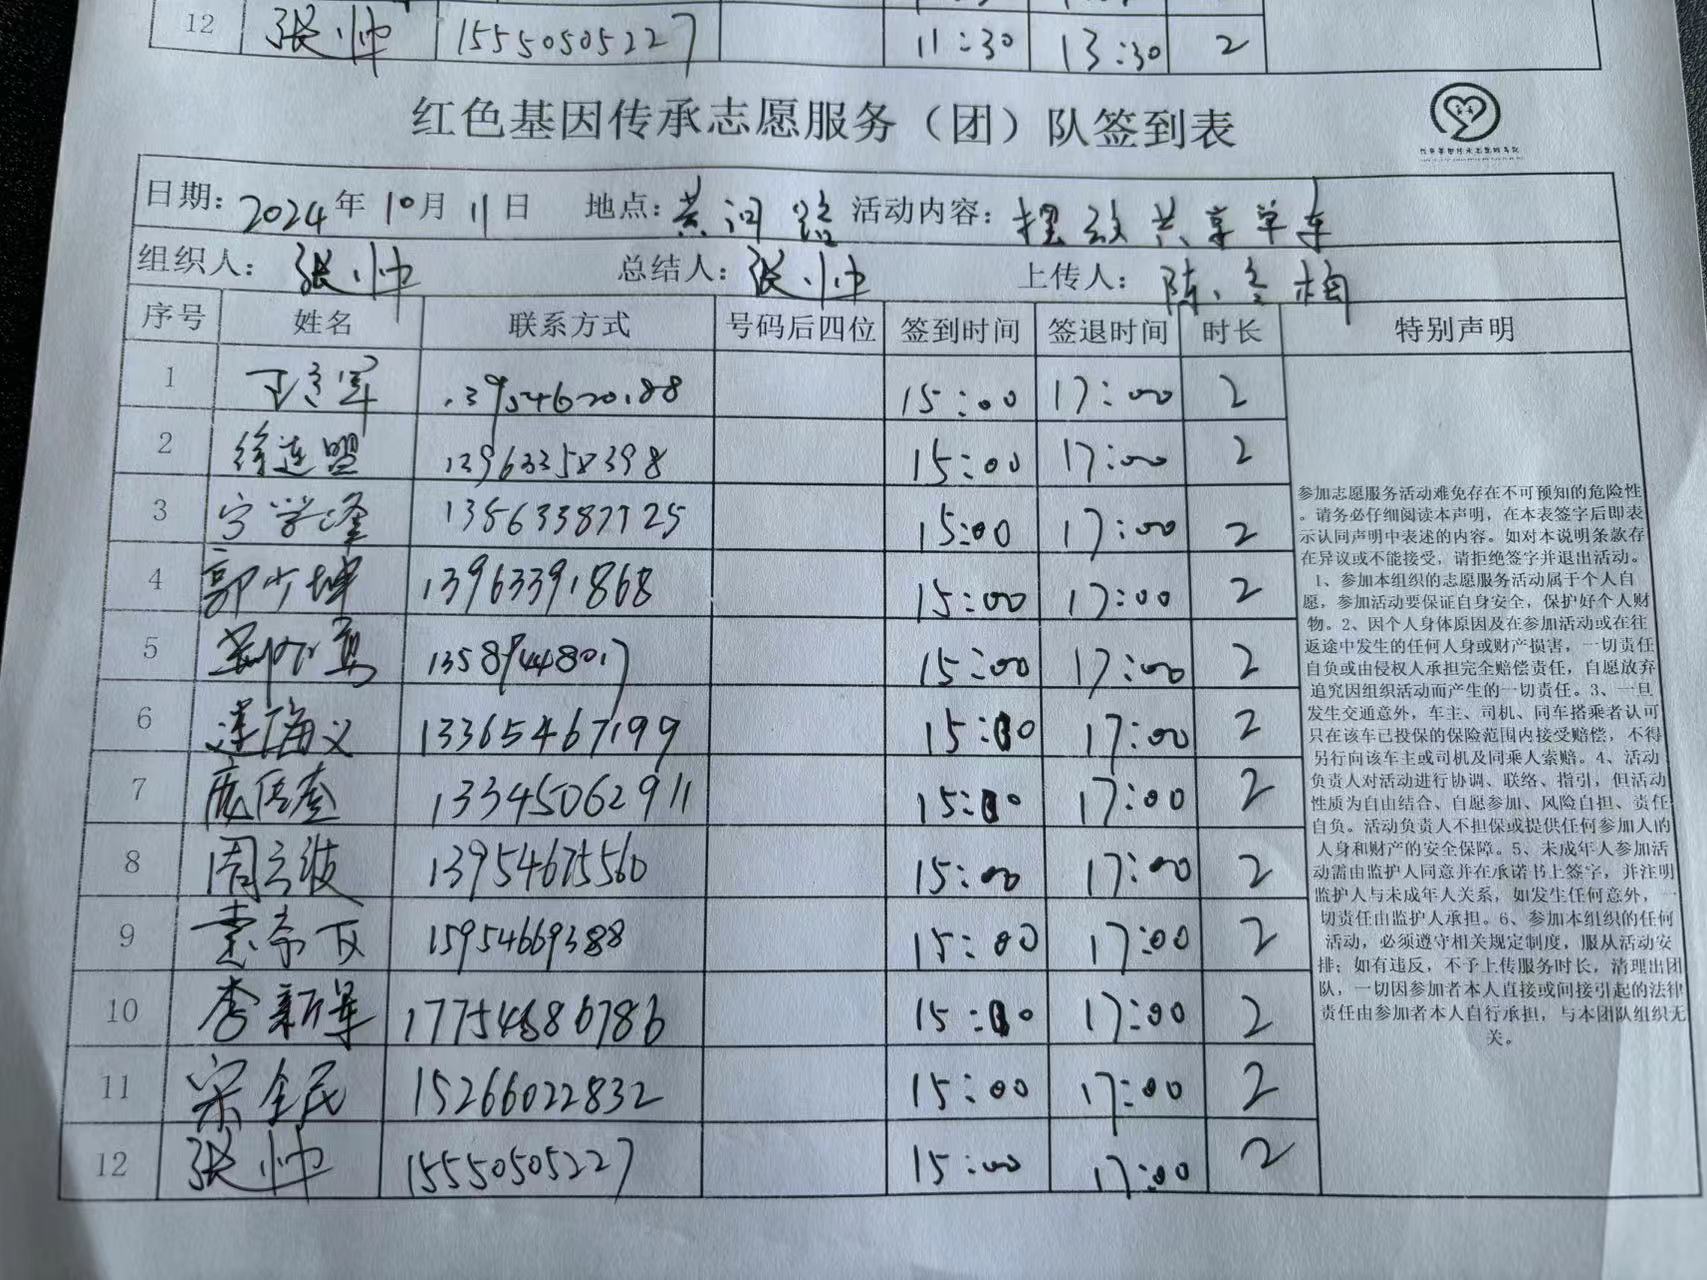 12 张帅 15550505227 11:30 13:30 2
红色基因传承志愿服务（团）队签到表
日期：2024年10月11日 地点：黄河路 活动内容：摆放共享单车
组织人：张帅 总结人：张帅 上传人：陈冬梅
序号 姓名 联系方式 号码后四位 签到时间 签退时间 时长 特别声明
1 13954620188 15:00 17:00 2
2 徐连盟 13963358398 15:00 17:00 2
3 宁学峰 13563387725 15:00 17:00 2
4 郭少坤 13963391868 15:00 17:00 2
5 13589448017 15:00 17:00 2
6 连海义 13365467199 15:00 17:00 2
7 13345062911 15:00 17:00 2
8 周云波 13954675560 15:00 17:00 2
9 15954669388 15:00 17:00 2
10 李新军 17754686786 15:00 17:00 2
11 宋全民 15266022832 15:00 17:00 2
12 张帅 15550505227 15:00 17:00 2
参加志愿服务活动难免存在不可预知的危险性
。请务必仔细阅读本声明，在本表签字后即表
示认同声明中表述的内容。如对本说明条款存
在异议或不能接受，请拒绝签字并退出活动。
1、参加本组织的志愿服务活动属于个人自
愿，参加活动要保证自身安全，保护好个人财
物。2、因个人身体原因及在参加活动或在往
返途中发生的任何人身或财产损害，一切责任
自负或由侵权人承担完全赔偿责任，自愿放弃
追究因组织活动而产生的一切责任。3、一旦
发生交通意外，车主、司机、同车搭乘者认可
只在该车已投保的保险范围内接受赔偿，不得
另行向该车主或司机及同乘人索赔。4、活动
负责人对活动进行协调、联络、指引，但活动
性质为自由结合、自愿参加、风险自担、责任
自负。活动负责人不担保或提供任何参加人的
人身和财产的安全保障。5、未成年人参加活
动需由监护人同意并在承诺书上签字，并注明
监护人与未成年人关系，如发生任何意外，一
切责任由监护人承担。6、参加本组织的任何
活动，必须遵守相关规定制度，服从活动安
排；如有违反，不予上传服务时长，清理出团
队，一切因参加者本人直接或间接引起的法律
责任由参加者本人自行承担，与本团队组织无
关。